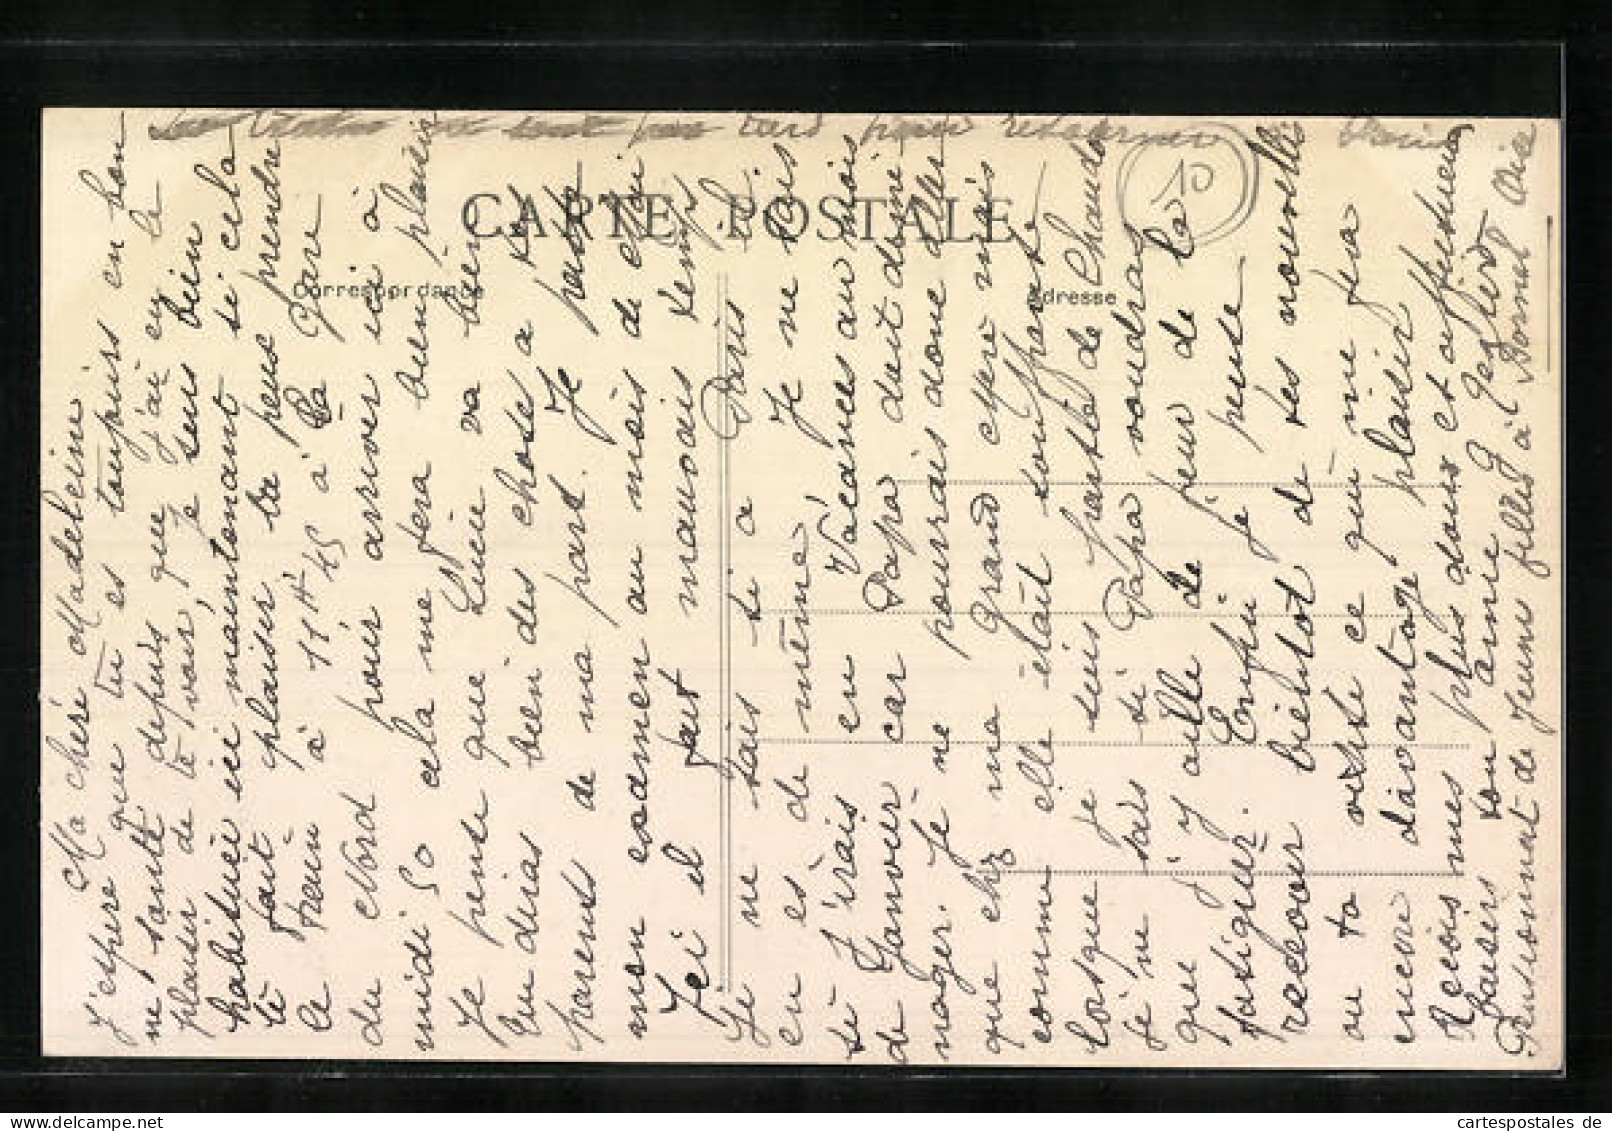 Ma cheré Madeleine
J'espere que tu es toujours en bon
ne santé depuis que j'ai eu le
plaisir de te voir, je suis bien
habituée ici maintenant si cela
te fait plaisir tu peus prendre
le train à 11 H 45 à la gare
du Nord pour arriver ici à
midi 50 cela me fera bien plaisir
Je pense que Lucie va bien
tu diras bien des chose a tes
parents de ma part. Je passe
mon examen au mois de
Ici il fait mauvais temps
Je ne sais si a Paris
en es de même Je ne sais
si J'irais en Vacances au mois
de Janvier car Papa doit démé-
nager. Je ne pourrais donc aller
que chez ma Grand mère mais
comme elle était souffrante
lorsque je suis partie de Chaudo
je ne sais si Papa voudrat
que j'y aille de peur de la
fatiguer. Enfin j'ésp pense
recevoir bientot de tes nouvelles
ou ta visite ce qui me fra
encore davantage plaisir
Recois mes plus doux et affectueux
baisers ton amie
Pensionnat de Jeune filles à Bornel Oise
tard pour retourner Paris
10
CARTE POSTALE
Correspondance
Adresse
cartespostales de